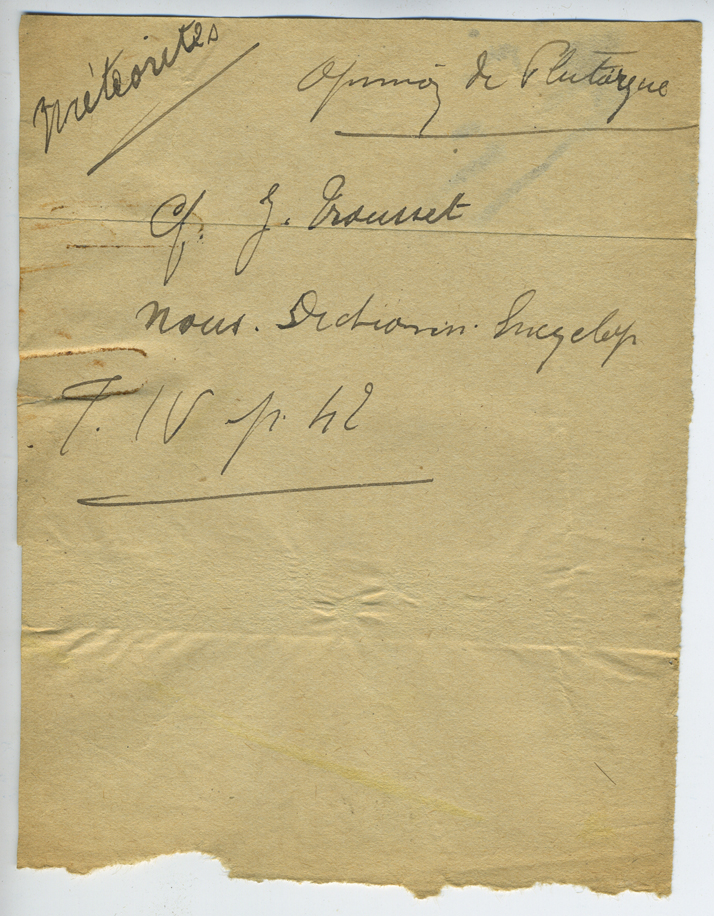 Météorites
Opinion de Plutarque
Cf. J. Trousset
nouv. Dictionn. Encyclop
T. IV p. 42